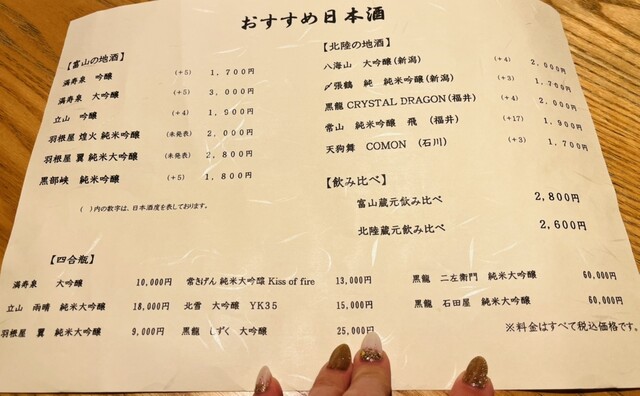 おすすめ日本酒
【富山の地酒】
満寿泉 吟醸 (+5) 1,700円
満寿泉 大吟醸 (+5) 3,000円
立山 吟醸 (+4) 1,900円
羽根屋 煌火 純米吟醸 (未発表) 2,000円
羽根屋 翼 純米大吟醸 (未発表) 2,800円
黒部峡 純米吟醸 (+5) 1,800円
( )内の数字は、日本酒度を表しております。
【北陸の地酒】
八海山 大吟醸(新潟) (+4) 2,000円
〆張鶴 純 純米吟醸(新潟) (+3) 1,760円
黒龍 CRYSTAL DRAGON(福井) (+4) 2,000円
常山 純米吟醸 飛 (福井) (+17) 1,900円
天狗舞 COMON (石川) (+3) 1,700円
【飲み比べ】
富山蔵元飲み比べ 2,800円
北陸蔵元飲み比べ 2,600円
【四合瓶】
満寿泉 大吟醸 10,000円
立山 雨晴 純米大吟醸 18,000円
羽根屋 翼 純米大吟醸 9,000円
常きげん 純米大吟醸 Kiss of fire 13,000円
北雪 大吟醸 YK35 15,000円
黒龍 しずく 大吟醸 25,000円
黒龍 二左衛門 純米大吟醸 60,000円
黒龍 石田屋 純米大吟醸 60,000円
※料金はすべて税込価格です。